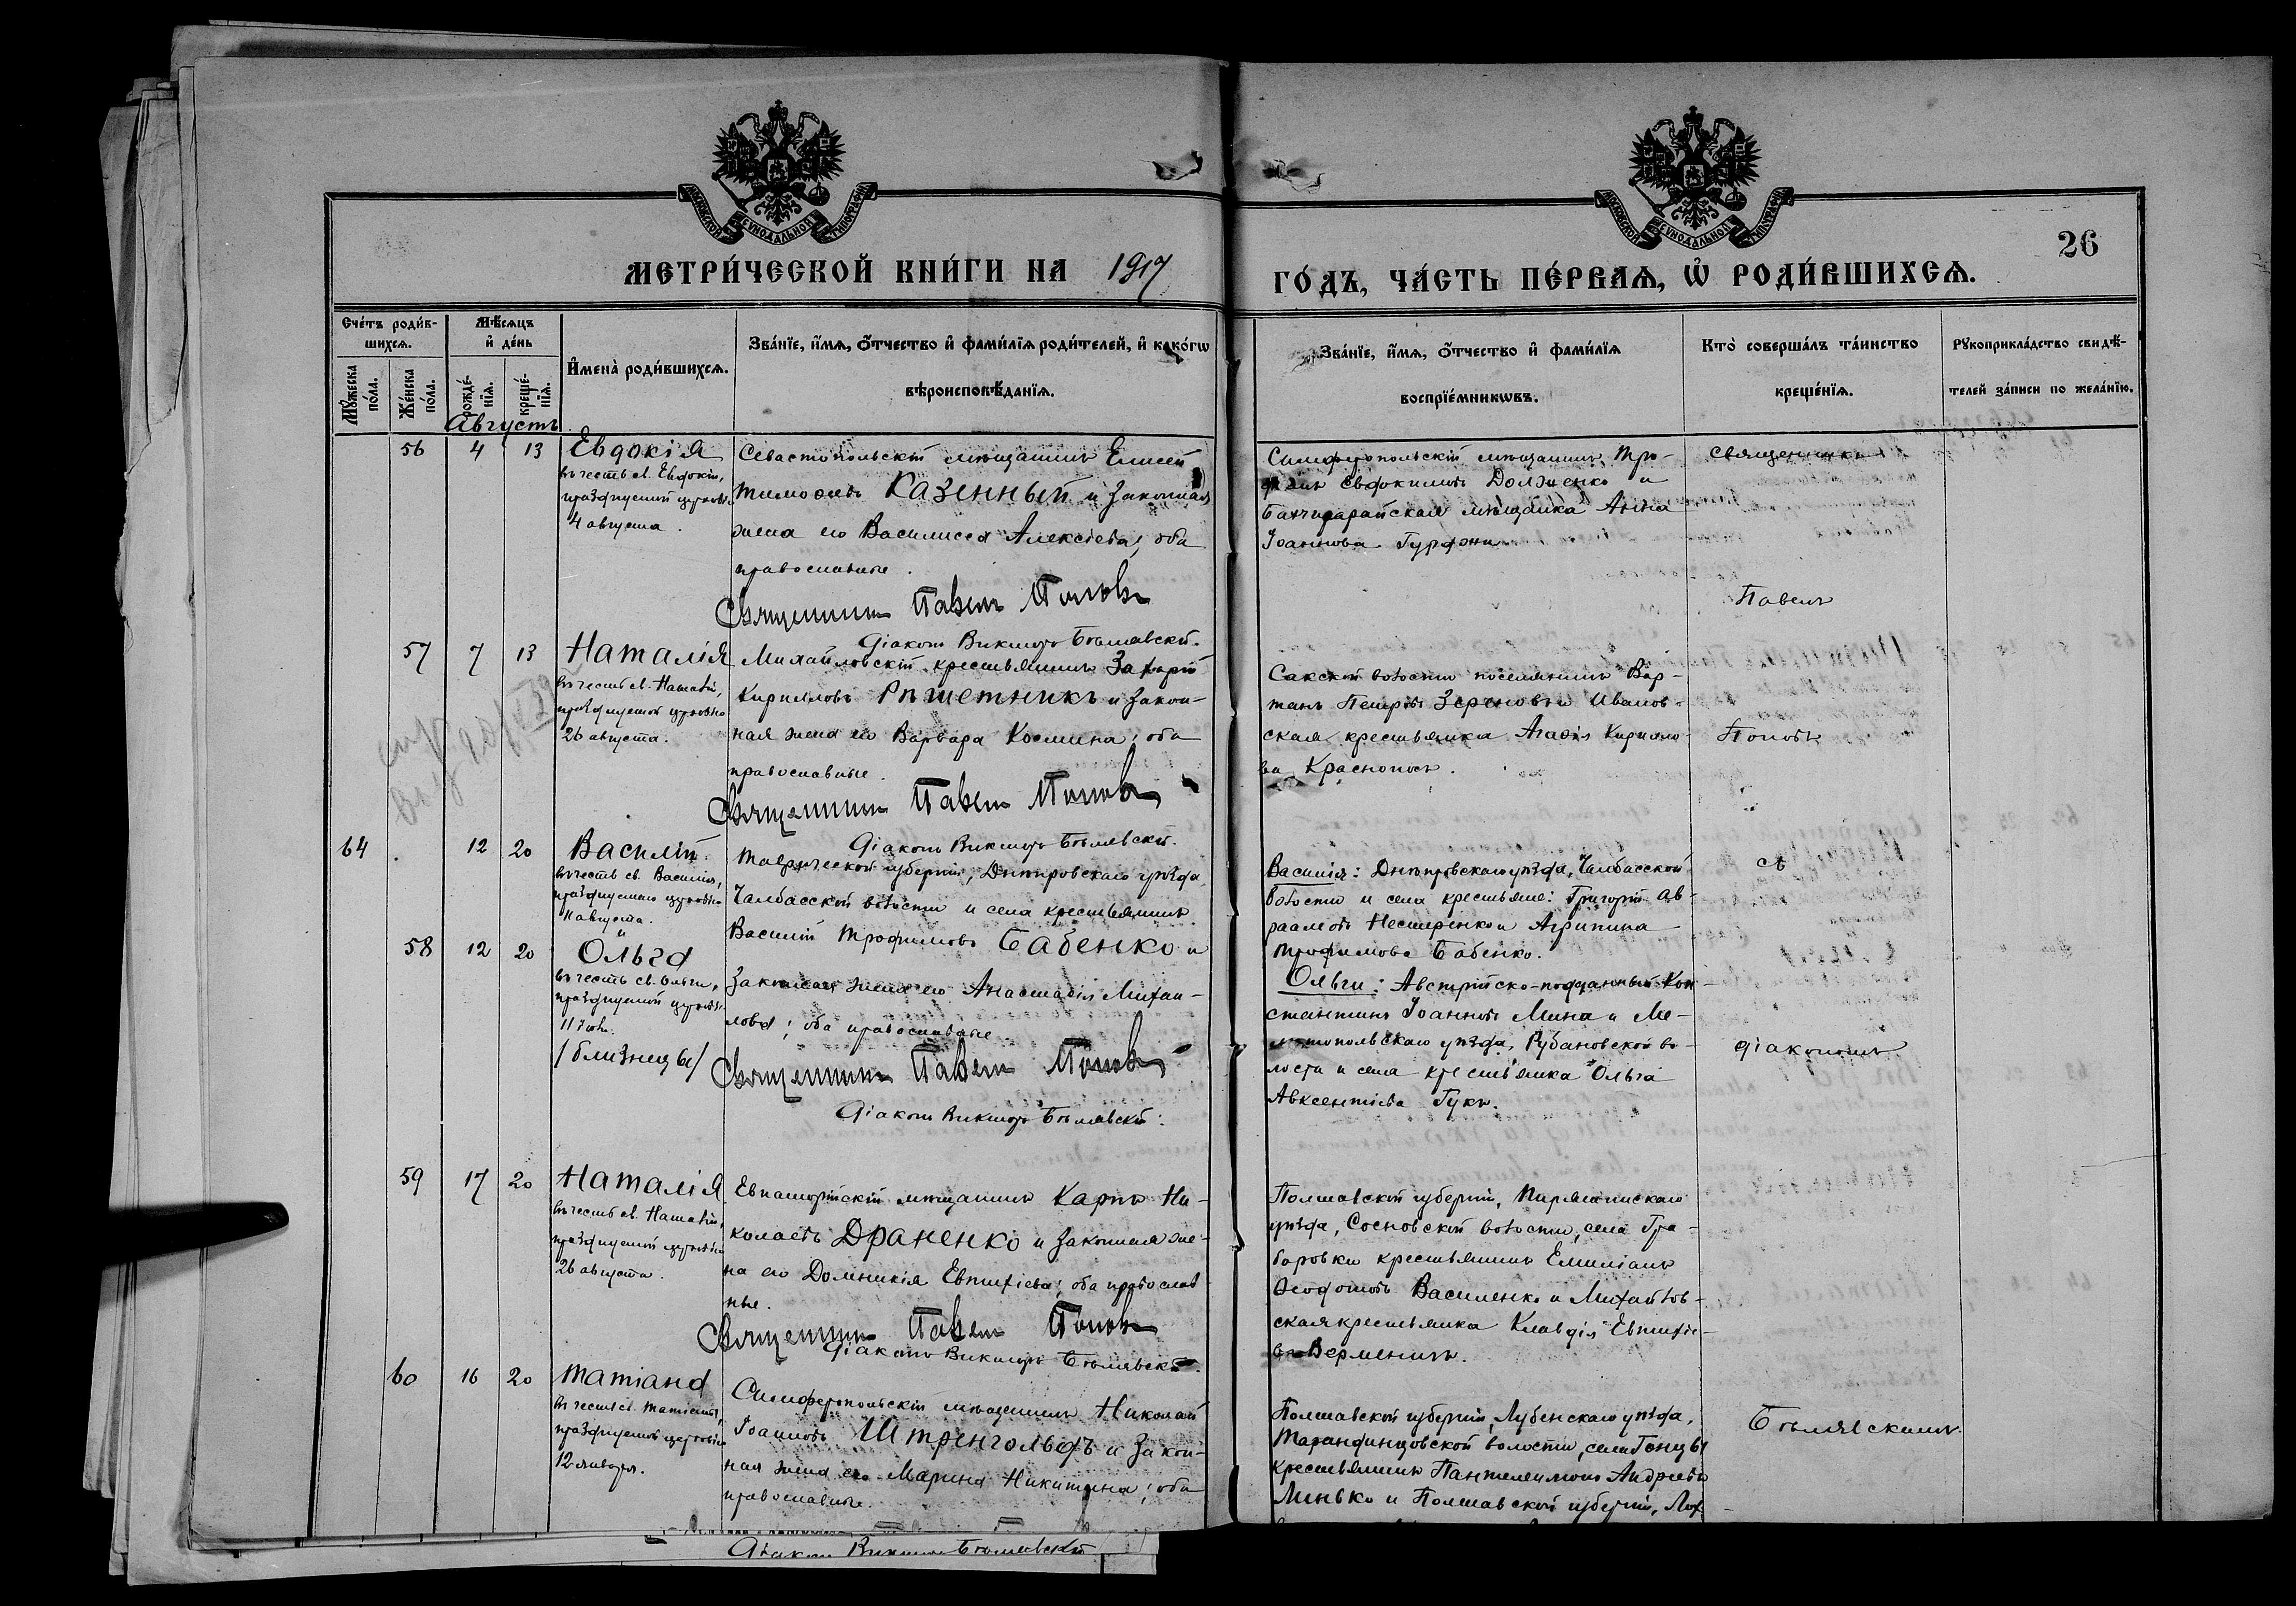 МЕТРИ́ЧЕСКОЙ КНИ́ГИ НА 1917
ГО́ДЪ, ЧА́СТЬ ПЕ́РВАЯ, Ѡ РОДИ́ВШИХСЯ.
26
Сче́тъ роди́в-
шихся.
Мѣ́сяцъ
и де́нь
Му́жеска
по́ла.
Же́нска
по́ла.
рожде́-
нїя.
креще́-
нїя.
Имена̀ роди́вшихся.
Зва́нїе, и́мя, о́тчество и фами́лїя роди́телей, и како́гѡ
вѣроисповѣ́данїя.
Зва́нїе, и́мя, о́тчество и фами́лїя
воспрїе́мникѡвъ.
Кто̀ соверша́лъ та́инство
креще́нїя.
Рꙋкоприкла́дство свидѣ́-
телей за́писи по жела́нїю.
Августъ
56 4 13 Евдокія
въ честь св. Евдокіи,
празднуемой церковью
4 августа.
Севастопольскій мѣщанинъ Елисей
Тимоѳеевъ Казенный и законная
жена его Василисса Алексіева; оба
православные.
Священникъ Павелъ Поповъ
Діаконъ Викторъ Бѣлявскій.
Симферопольскій мѣщанинъ Тро-
фимъ Евдокимовъ Долженко и
Бахчисарайская мѣщанка Анна
Іоаннова Гурджи
Священникъ
Павелъ
57 7 13 Наталія
въ честь св. Наталіи,
празднуемой церковью
26 августа.
Михайловскій крестьянинъ Захарій
Кирилловъ Рѣшетникъ и закон-
ная жена его Варвара Космина; оба
православные.
Священникъ Павелъ Поповъ
Діаконъ Викторъ Бѣлявскій.
Сакской волости поселянинъ Вар-
танъ Петровъ Зереновъ и Иванов-
ская крестьянка Агаѳія Кирилло-
ва Краснопось.
Поповъ
64 12 20 Василій
въ честь св. Василія,
празднуемаго церковью
11 августа.
Таврической губерніи, Днѣпровскаго уѣзда,
Чалбасской волости и села крестьянинъ
Василій Трофимовъ Бабенко и
законная жена его Анастасія Михаи-
лова; оба православные.
Василія: Днѣпровскаго уѣзда, Чалбасской
волости и села крестьяне: Григорій Ав-
раамовъ Нестеренко и Агрипина
Трофимова Бабенко.
съ
58 12 20 Ольга
въ честь св. Ольги,
празднуемой церковью
11 іюля.
/близнецы/
Священникъ Павелъ Поповъ
Діаконъ Викторъ Бѣлявскій.
Ольги: Австрійско-подданный Кон-
стантинъ Іоанновъ Мина и Ме-
литопольскаго уѣзда, Рубановской во-
лости и села крестьянка Ольга
Авксентіева Гукъ.
діакономъ
59 17 20 Наталія
въ честь св. Наталіи,
празднуемой церковью
26 августа.
Евпаторійскій мѣщанинъ Карпъ Ни-
колаевъ Драненко и законная же-
на его Домникія Евтихіева; оба православ
ные.
Священникъ Павелъ Поповъ
Діаконъ Викторъ Бѣлявскій.
Полтавской губерніи, Пирятинскаго
уѣзда, Сосновской волости, села Гра-
баровки крестьянинъ Емиліанъ
Ѳеодотовъ Василенко и Михайлов-
ская крестьянка Клавдія Евтихіе-
ва Верменичъ.
60 16 20 Татіана
въ честь св. Татіаны,
празднуемой церковью
12 января.
Симферопольскій мѣщанинъ Николай
Іоанновъ Штренгольфъ и закон-
ная жена его Марина Никитина; оба
православные.
Полтавской губерніи, Лубенскаго уѣзда,
Тарандинцовской волости, села Гонцы
крестьянинъ Пантелеимонъ Андреевъ
Линько и Полтавской губерніи, Лох-
Бѣлявскимъ.
Діаконъ Викторъ Бѣлявскій